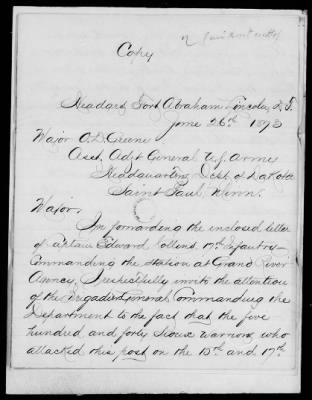 Copy
Headqrs Fort Abraham Lincoln, D.T.
June 26th 1873
Major O.D. Greene
Asst. Adjt General U.S. Army
Headquarters, Dept. of Dakota
Saint Paul, Minn.
Major,
In forwarding the inclosed letter
of Captain Edward Collins, 17th Infantry-
Commanding the Station at Grand River
Agency, I respectfully invite the attention
of the Brigadier General, Commanding the
Department to the fact that the five
hundred and forty Sioux warriors who
attacked this post on the 15th and 17th